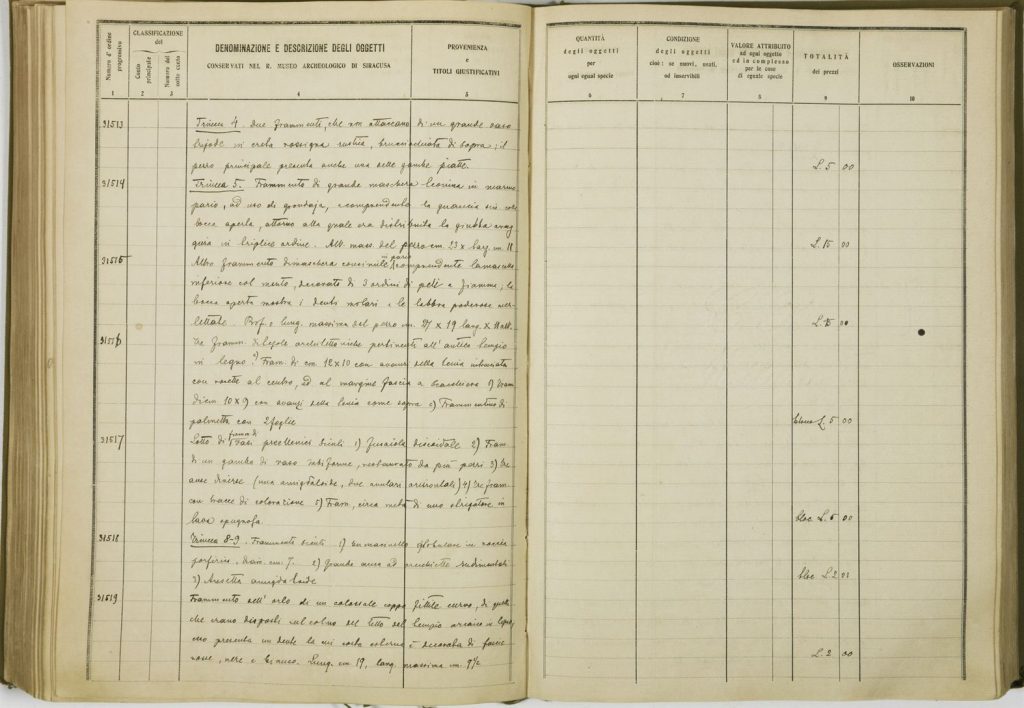 Numero d'ordine progressivo
CLASSIFICAZIONE
del
Conto principale
Numero del sotto conto
DENOMINAZIONE E DESCRIZIONE DEGLI OGGETTI
CONSERVATI NEL R. MUSEO ARCHEOLOGICO DI SIRACUSA
PROVENIENZA
e
TITOLI GIUSTIFICATIVI
1 2 3 4 5
31513 Trincea 4. Due frammenti, che non attaccano di un grande vaso
in creta rossigna rustica, di sopra; il
pezzo principale presenta anche una delle gambe piatte.
31514 Trincea 5. Frammento di grande maschera leonina in marmo
pario, ad uso di grondaja, comprendente la guancia
bocca aperta, attorno alla quale era distribuita la giubba
in triplice ordine. Alt. mass. del pezzo cm. 23 x larg. cm. 11
31515 Altro frammento di maschera in pario comprendente la mascella
inferiore col mento, decorato di 3 ordini di peli a fiamme; la
bocca aperta mostra i denti molari e le labbra poderose
Prof. o lung. massima del pezzo cm. 27 x 19 larg. x 11 alt.
Tre framm. di tegole architettoniche pertinenti all'antico tempio
in legno. Fram. di cm. 12 x 10 con avanzi della
con rosette al centro, ed al margine fascia a scacchiera
di cm 10 x 9 con avanzi della come sopra c) Frammentino di
palmetta con 2 foglie
31517 Lotto di framm. di vasi preellenici siculi 1) Fusaiola discoidale 2) Fram.
di un gambo di vaso tubiforme, restaurato da più pezzi 3) Tre
anse diverse (una amigdaloide, due anulari orizzontali) 4) Tre fram.
con tracce di colorazione 5) Fram. circa metà di uno in
lava spugnosa.
31518 Trincea 8-9. Frammenti siculi 1) Un macinello globulare in roccia
porfirica, diam. cm. 7. 2) Grande ansa ad orecchiette rudimentali
3) Ansetta amigdaloide
31519 Frammento dell'orlo di un colossale coppo fittile curvo, di quelli
che erano disposti sul colmo del tetto del tempio arcaico in legno,
esso presenta un dente la cui costa esterna è decorata di fascie
rosse, nere e bianco. Lung. cm 19, larg. massima cm. 9½
QUANTITÀ
degli oggetti
per
ogni egual specie
CONDIZIONE
degli oggetti
cioè: se nuovi, usati,
od inservibili
VALORE ATTRIBUITO
ad ogni oggetto
ed in complesso
per le cose
di eguale specie
TOTALITÀ
dei prezzi
OSSERVAZIONI
6 7 8 9 10
L. 5 00
L. 15 00
L. 15 00
L. 5 00
bloc L. 5 00
bloc L. 2 00
L. 2 00